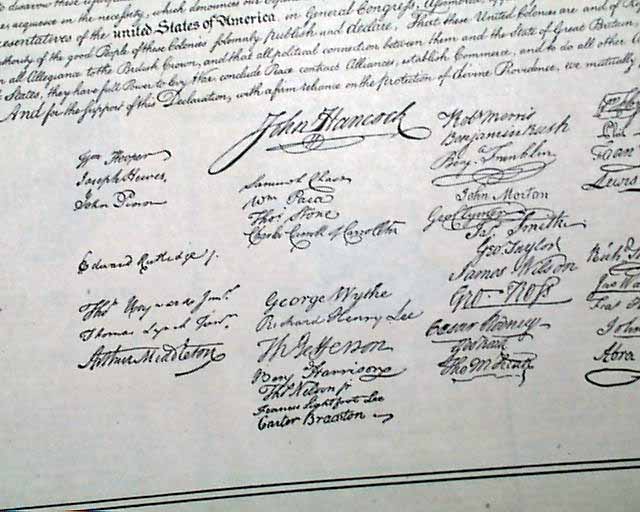 acquiesce in the necessity, which denounces our
esentatives of the united States of America, in General Congress,
thority of the good People of these Colonies solemnly publish and declare, That these United Colonies are and of R
all Allegiance to the British Crown, and that all political connection between them and the State of Great Britain
States, they have full Power to levy War, conclude Peace contract Alliances, establish Commerce, and to do all other A
And for the support of this Declaration, with a firm reliance on the protection of divine Providence, we mutually
John Hancock
Wm Hooper
Joseph Hewes
John Penn
Edward Rutledge
Thos Heyward Junr
Thomas Lynch Junr
Arthur Middleton
Samuel Chase
Wm Paca
Thos Stone
Charles Carroll of Carrollton
George Wythe
Richard Henry Lee
Th Jefferson
Benj Harrison
Thos Nelson jr
Francis Lightfoot Lee
Carter Braxton
Robt Morris
Benjamin Rush
Benj Franklin
John Morton
Geo Clymer
Jas Smith
Geo. Taylor
James Wilson
Geo. Ross
Caesar Rodney
Geo Read
Tho M:Kean
Lewis
John
Abra